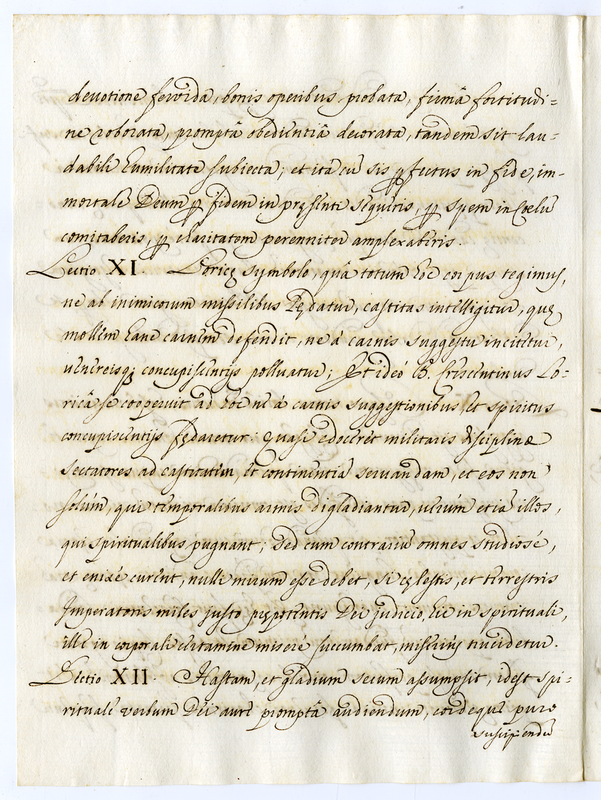 devotione fervida, bonis operibus probata, firmâ fortitudi-
ne roborata, promptâ obedientiâ decorata, tandem sit lau-
dabili humilitate subiecta; et itâ cũ sis ꝑfectus in fide, im-
mortalẽ Deum ꝑ fidem in pręsenti sequêris, ꝑ spem in Cœlũ
comitaberis, ꝑ charitatem perenniter amplexaberis.
Lectio XI. Loricę symbolo, quâ totum hoc corpus tegimus,
ne ab inimicorum missilibus lędatur, castitas intelligitur, quę
mollem hanc carnem defendit, ne á carnis suggestu incitetur,
venereisq; concupiscentijs polluatur; Et ideó B. Crescentinus Lo-
ricâ se cooperuit ad hoc ne á carnis suggestionibus, et spiritus
concupiscentijs fędaretur: Quasi edocêret militaris disciplinæ
sectatores ad castitatem, et continentiã servandam, et eos non
solùm, qui temporalibus armis digladiantur, verùm etiã illos,
qui spiritualibus pugnant; Sed cum contrariũ omnes studiosé,
et enixé curent, nulli mirum esse debet, si cęlestis, et terrestris
Imperatoris miles justo prępotentis Dei judicio, hic in spirituali,
ille in corporali certamine miseré succumbat, miseriùs trucidetur.
Lectio XII. Hastam, et gladium secum assumpsit, idest spi-
rituale verbum Dei aure promptâ audiendum, cordeque puro
suscipiendũ